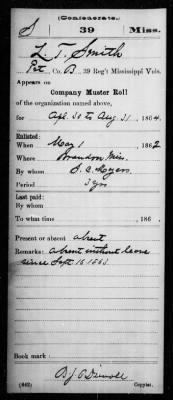 (Confederate.)
S 39 Miss.
L. T. Smith
Pvt, Co. B, 39 Reg't Mississippi Vols.
Appears on
Company Muster Roll
of the organization named above,
for Apl 30 to Aug 31, 1864.
Enlisted:
When May 1, 1862
Where Brandon Miss.
By whom
Period 3 yrs
Last paid:
By whom
To what time , 186 .
Present or absent absent
Remarks: absent without leave
since Sept 16 1863.
Book mark:
(642) Copyist.